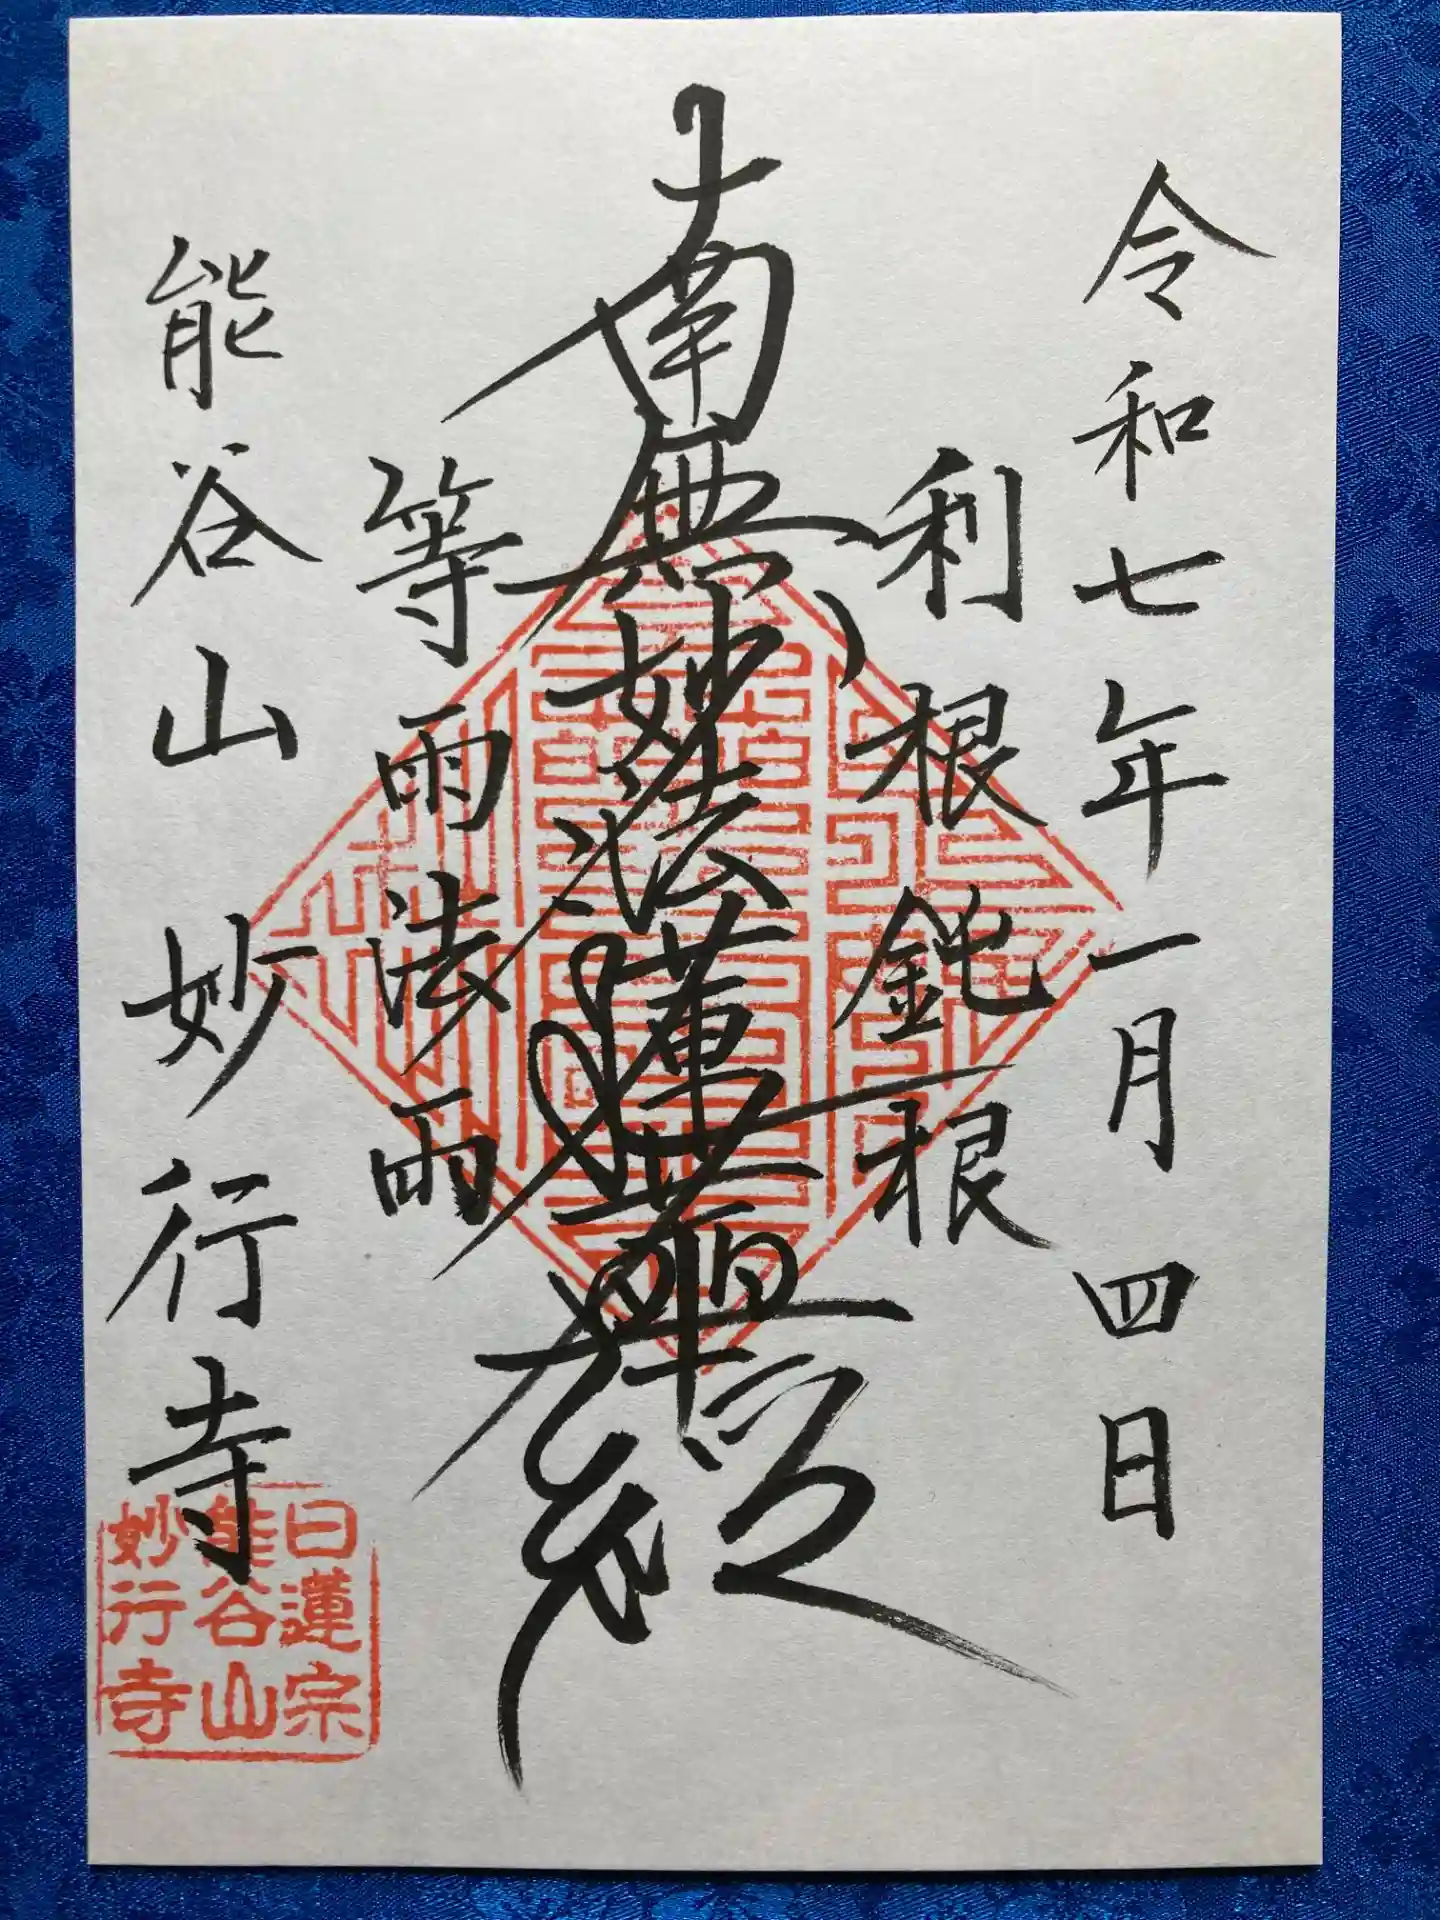 令和七年一月四日
利根鈍根
南無妙法蓮華経
等雨法雨
能谷山妙行寺
日蓮宗
能谷山
妙行寺